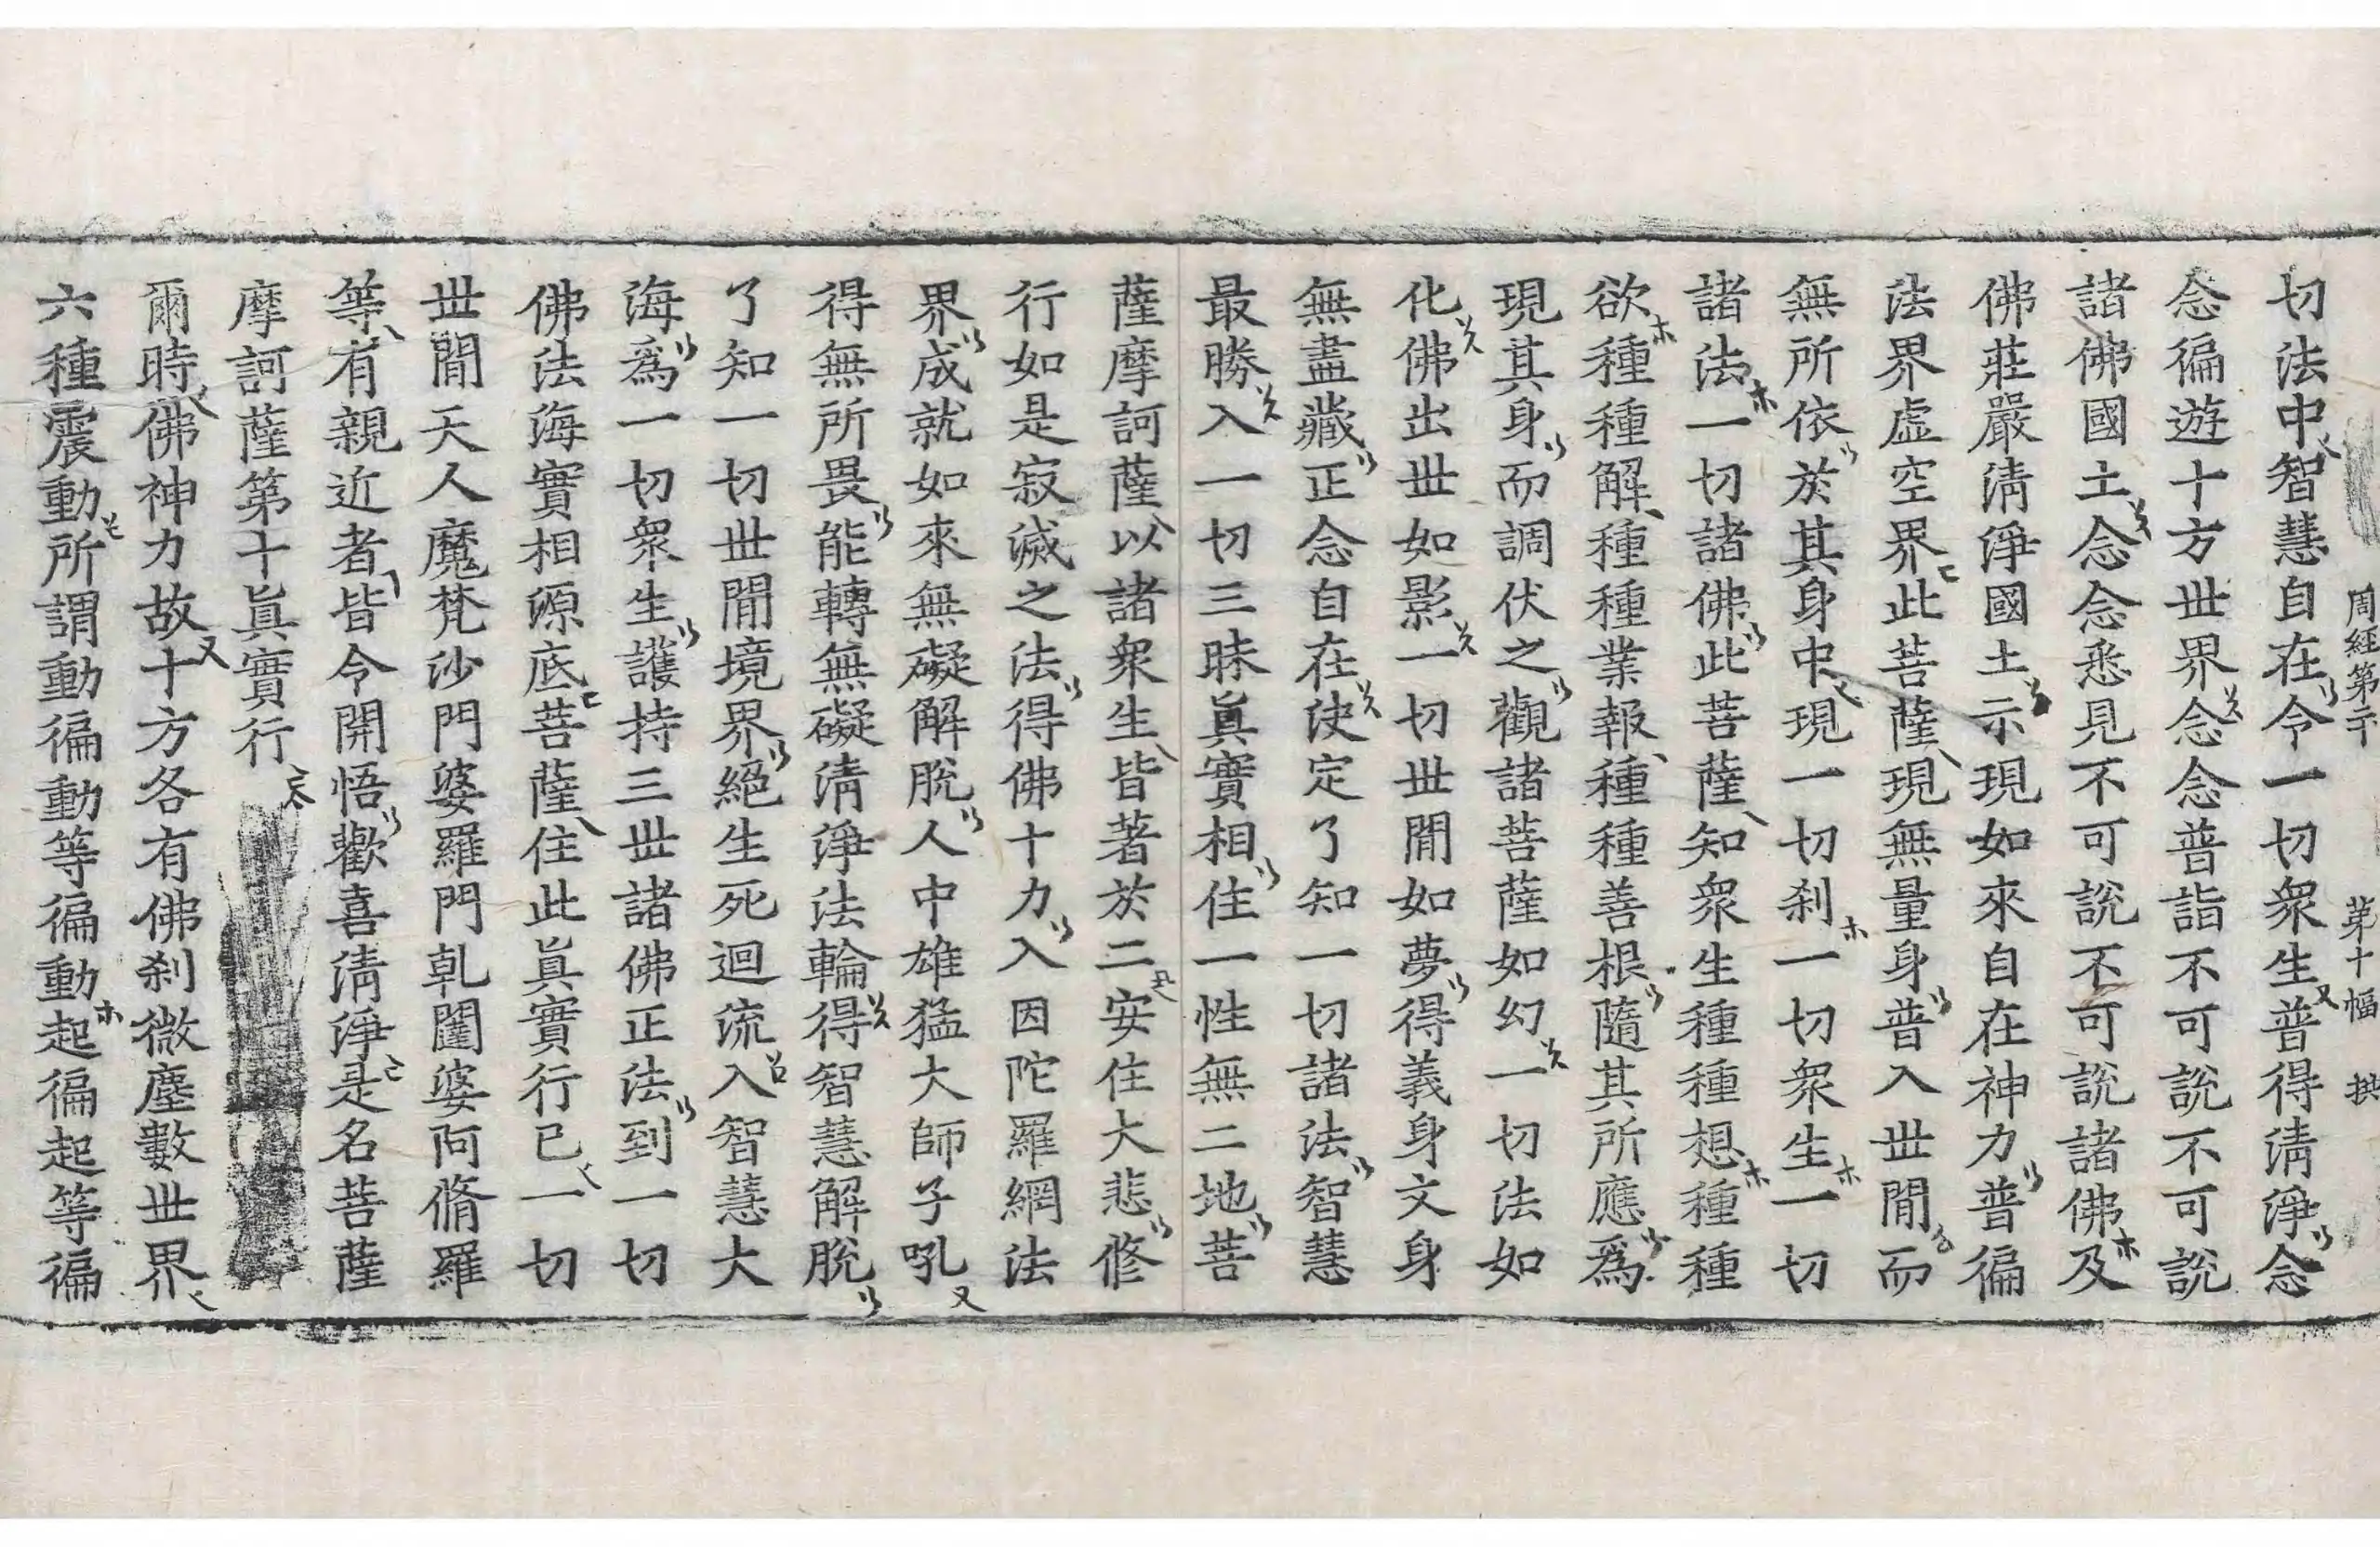 周經第二十 第十幅 拱
切法中智慧自在令一切衆生普得清淨念
念徧遊十方世界念念普詣不可說不可說
諸佛國土念念悉見不可說不可說諸佛及
佛莊嚴清淨國土示現如來自在神力普徧
法界虛空界此菩薩現無量身普入世閒而
無所依於其身中現一切刹一切衆生一切
諸法一切諸佛此菩薩知衆生種種想種種
欲種種解種種業報種種善根隨其所應爲
現其身而調伏之觀諸菩薩如幻一切法如
化佛出世如影一切世閒如夢得義身文身
無盡藏正念自在決定了知一切諸法智慧
最勝入一切三昧眞實相住一性無二地菩
薩摩訶薩以諸衆生皆著於二安住大悲修
行如是寂滅之法得佛十力入因陀羅網法
界成就如來無礙解脫人中雄猛大師子吼
得無所畏能轉無礙清淨法輪得智慧解脫
了知一切世閒境界絕生死迴流入智慧大
海爲一切衆生護持三世諸佛正法到一切
佛法海實相源底菩薩住此眞實行已一切
世閒天人魔梵沙門婆羅門乹闥婆阿脩羅
等有親近者皆令開悟歡喜清淨是名菩薩
摩訶薩第十眞實行
爾時佛神力故十方各有佛刹微塵數世界
六種震動所謂動徧動等徧動起徧起等徧